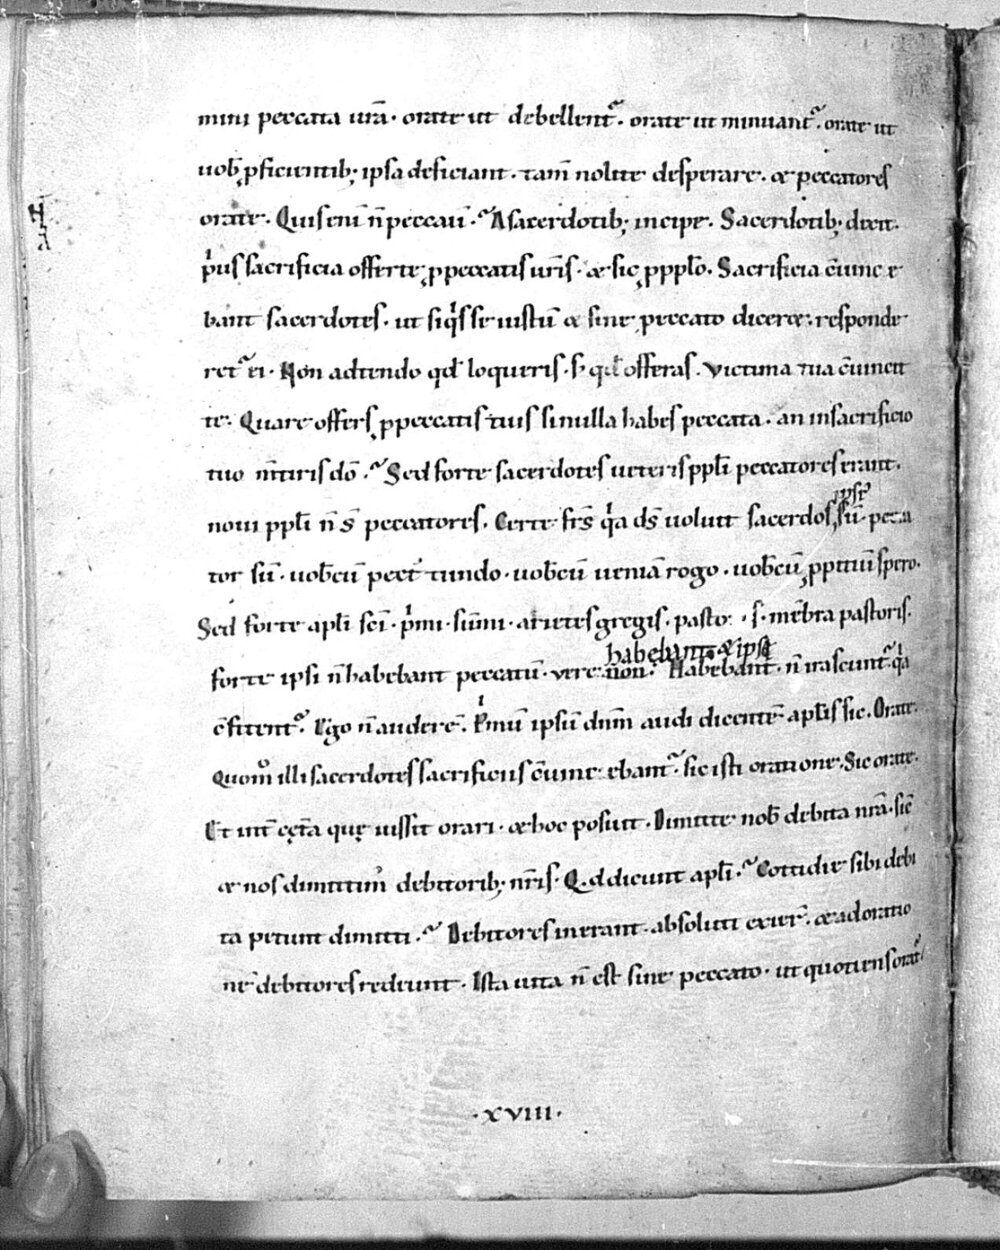 mini peccata ur̄a · orate ut debellent᷑ · orate ut minuant᷑ · orate ut
uob̄ ꝓficientib; ipsa deficiant · tam̄ nolite desperare · & peccatores
orate · Quis eni ̄ n̄ peccaui ̄ · A sacerdotib; incipe · Sacerdotib; dixit ·
pⁱus sacrificia offerte ꝓ peccatis ur̄is · & sic ꝓ pplo ̄ · Sacrificia c̄uince
bant sacerdotes · ut siqⁱs se iustū & sine peccato diceret · responde
ret᷑ ei · Non adtendo qđ loqueris · s; qđ offeras · victima tua c̄uincit
te · Quare offers ꝓ peccatis tuis si nulla habes peccata · an in sacrificio
tuo m̄tiris dō · Sed forte sacerdotes ueteris ppl̄i peccatores erant ·
noui ppl̄i n̄ s̄ peccatores · Certe fr̄s qⁱa ds̄ uoluit sacerdos ipsi ̄ sū · pecca
tor sū · uob̄cū pect᷑ tundo · uob̄cū ueniā rogo · uob̄cū ꝓpitiū spero ·
Sed forte apl̄i sc̄i · pⁱmi · sūmi · arietes gregis · pasto · s · mēbra pastoris ·
habebant & ipsi
forte ipsi n̄ habebant peccatū · vere non · Habebant · n̄ irascunt᷑ qⁱa
c̄fitent᷑ · Ego n̄ auderē · Pⁱmū ipsū dn̄m audi dicentē apl̄is sic · Orate ·
Quom̊ illi sacerdotes sacrificiis c̄uince ebant᷑ · sic isti oratione · Sic orate ·
Et int᷑ cęt᷑a quę iussit orari · & hoc posuit · Dimitte nob̄ debita nr̄a · sic̄
& nos dimittim᷒ debitorib; nr̄is · Q d dicunt apl̄i · Cottidie sibi debi
ta petunt dimitti · Debitores inerant · absoluti exier̄ · & ad oratio
nē debitores redeunt · Ista uita n̄ est sine peccato · ut quotiens orat᷑
· XVIII ·